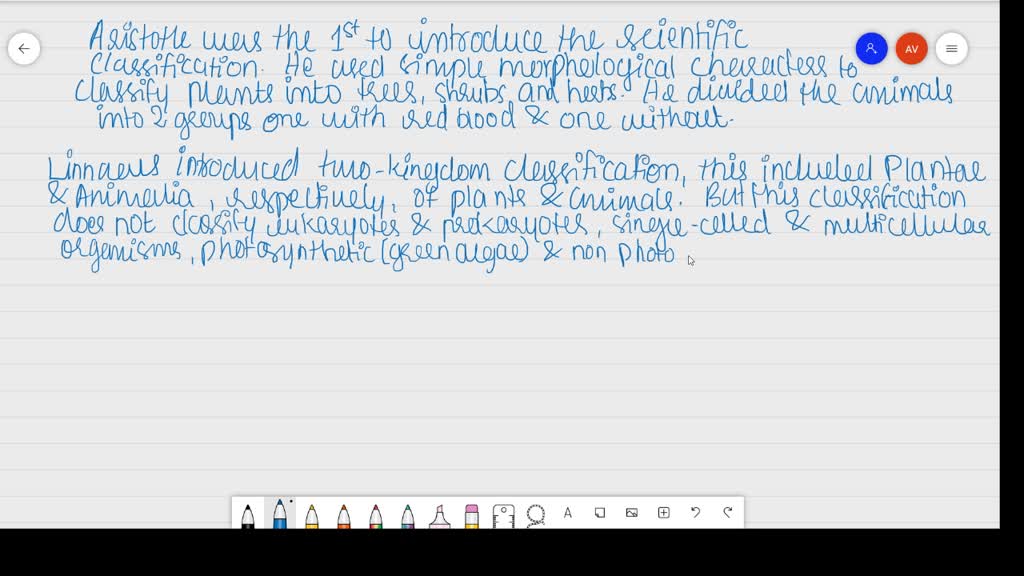 Aristotle was the 1st to introduce the scientific
classification. He used simple morphological characters to
classify plants into trees, shrubs and herbs. He divided the animals
into 2 groups one with red blood & one without.
Linnaeus introduced two-kingdom classification, this included Plantae
& Animalia, respectively, of plants & animals. But this classification
does not classify eukaryotes & prokaryotes, single-celled & multicellular
organisms, photosynthetic (green algae) & non photo
AV
A